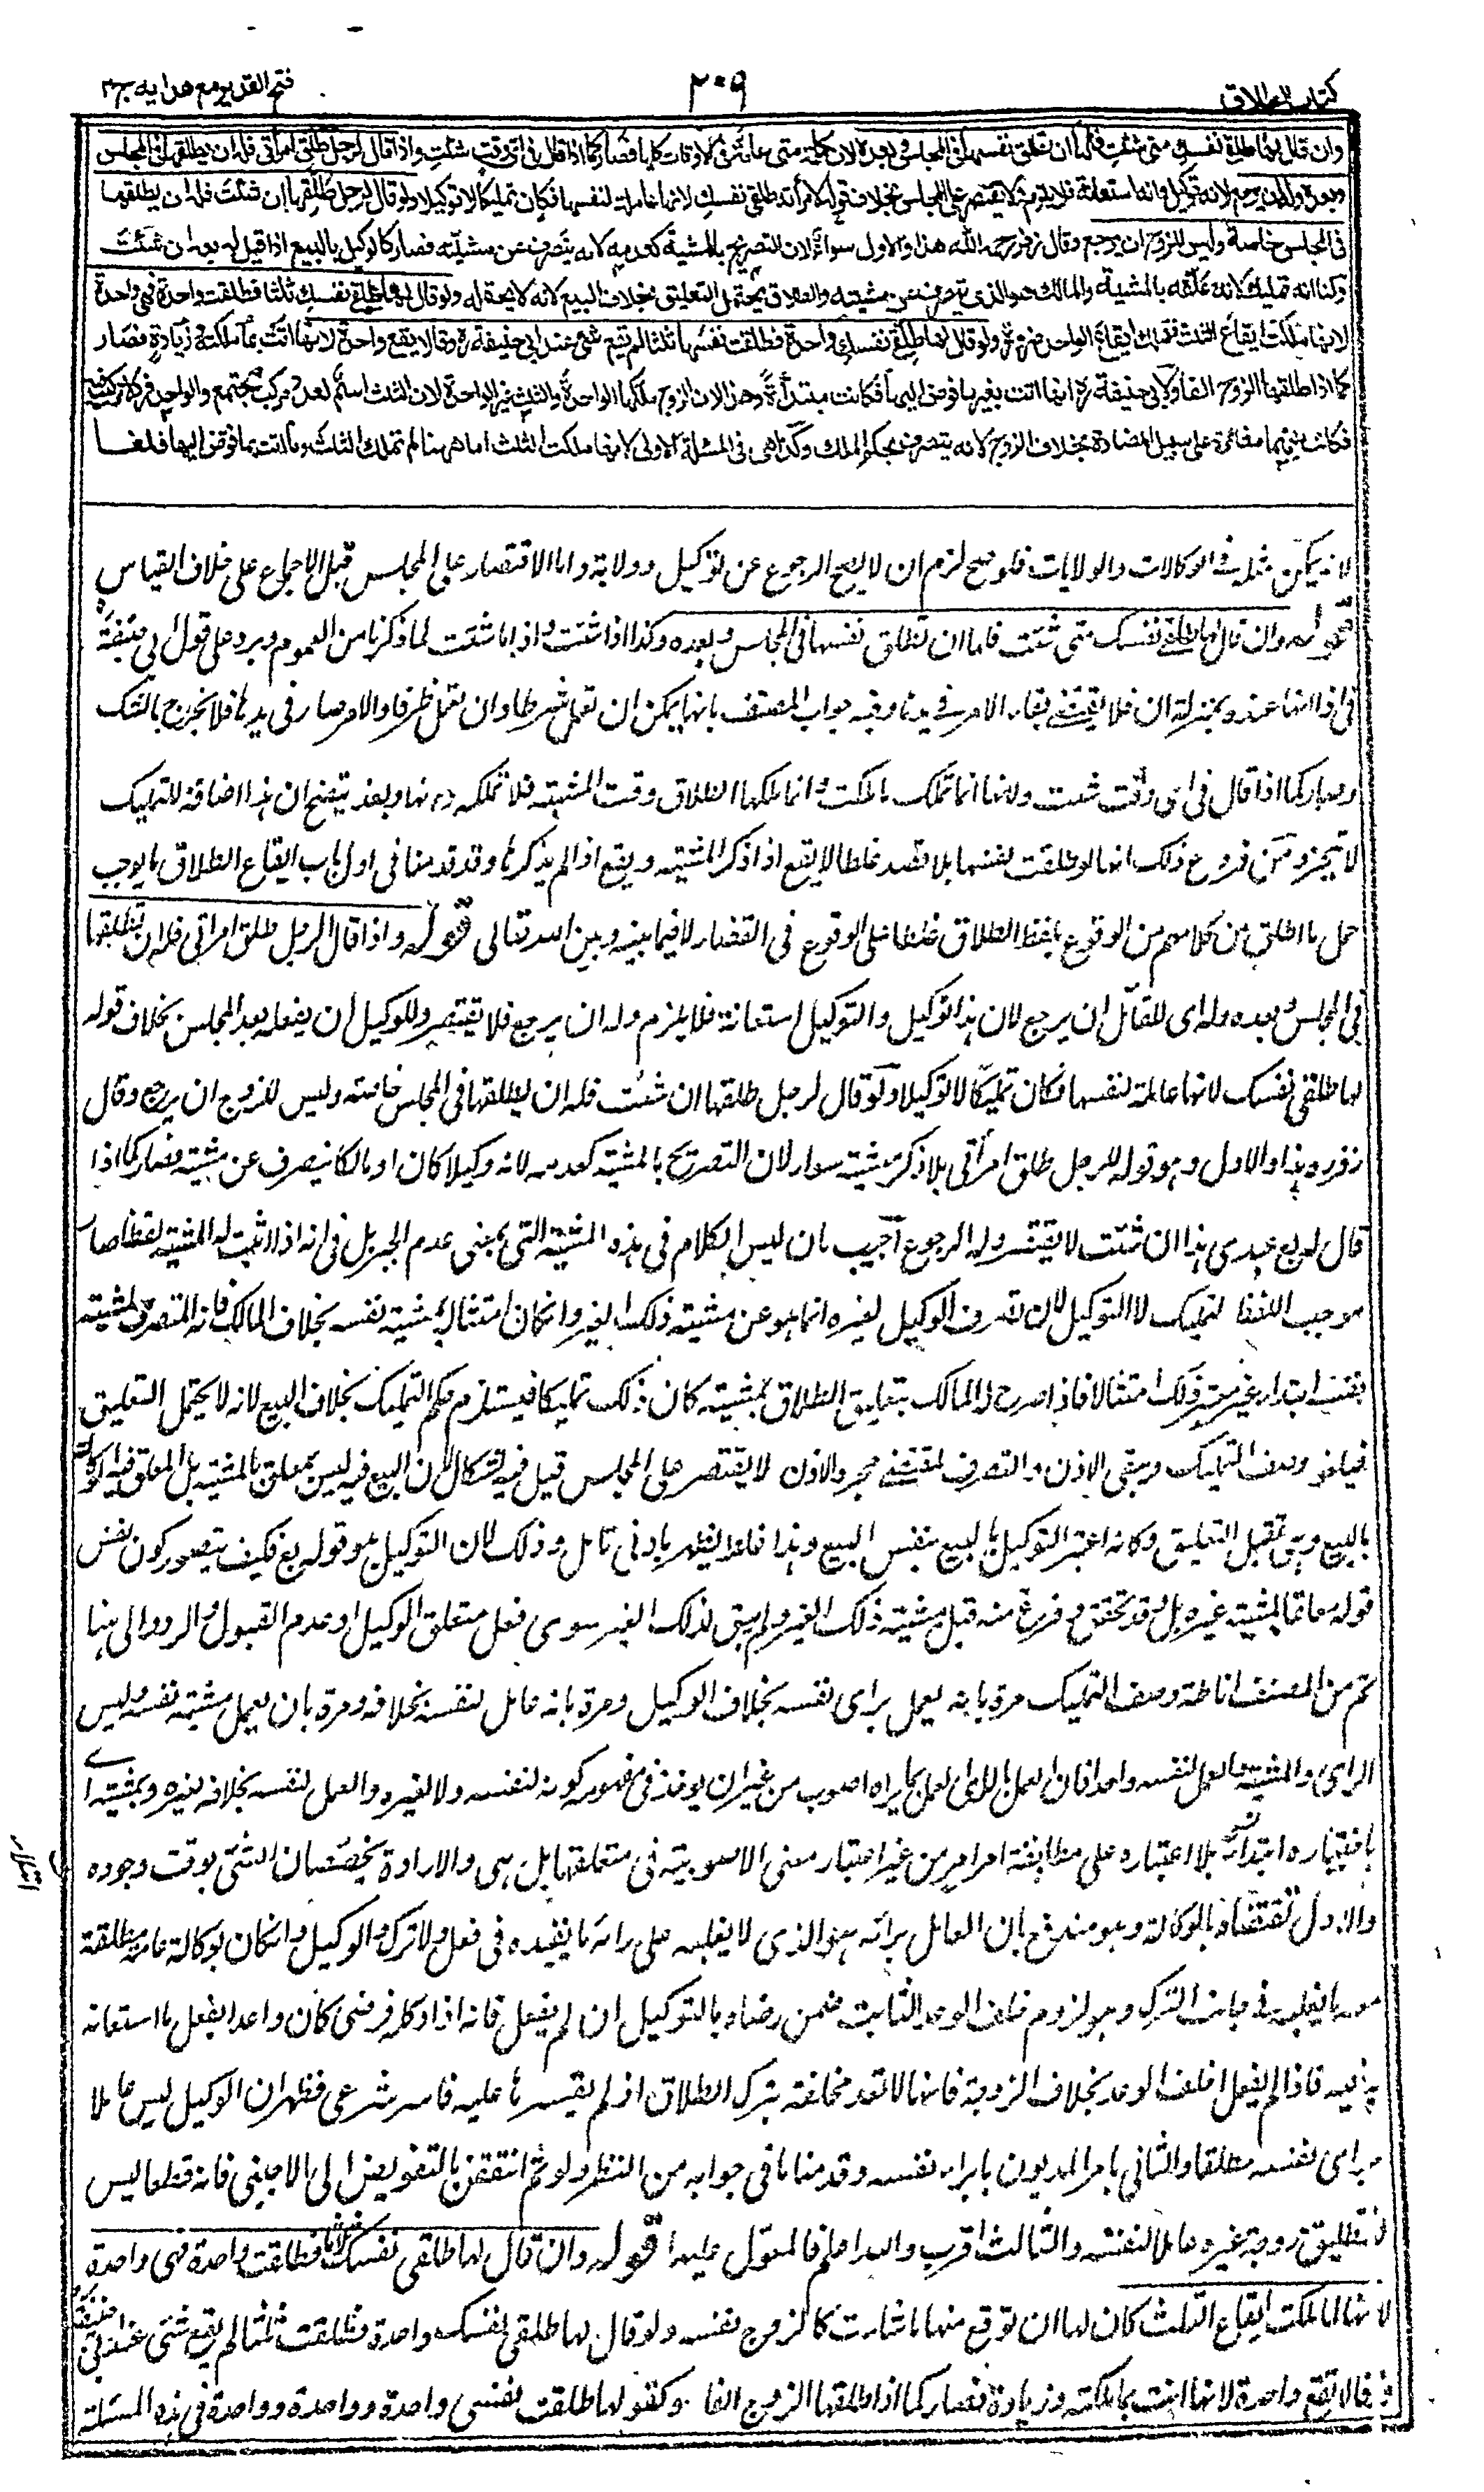 كتاب الطلاق
٢٠٩
فتح القدير مع هدايه ج ٣
وان قال لها طلقى نفسك متى شئت فلها ان تطلق نفسها فى المجلس وبعده لان كلمة متى عامة فى الاوقات كلها فصار كما اذا قال فى اى وقت شئت واذا قال لرجل طلق امرأتى فله ان يطلقها فى المجلس
وبعده وله ان يرجع لانه توكيل وانه استعانة فلا يلزم ولا يقتصر على المجلس بخلاف قوله لامرأته طلقى نفسك لانها عاملة لنفسها فكان تمليكا لا توكيلا ولو قال لرجل طلقها ان شئت فله ان يطلقها
فى المجلس خاصة وليس للزوج ان يرجع وقال زفر رحمه الله هذا والاول سواء لان التصريح بالمشية كعدمه لانه يتصرف عن مشيته فصار كالوكيل بالبيع اذا قيل له بعه ان شئت
ولنا انه تمليك لانه علقه بالمشية والمالك هو الذى يتصرف عن مشيته والطلاق يحتمل التعليق بخلاف البيع لانه لا يحتمله ولو قال لها طلقى نفسك ثلثا فطلقت واحدة فهى واحدة
لانها ملكت ايقاع الثلث فتملك ايقاع الواحد ضرورة ولو قال لها طلقى نفسك واحدة فطلقت نفسها ثلثا لم يقع شئ عند ابى حنيفة ره وقالا يقع واحدة لانها اتت بما ملكته وزيادة فصار
كما اذا طلقها الزوج الفا ولابى حنيفة ره انها اتت بغير ما فوض اليها فكانت مبتدأة وهذا لان الزوج ملكها الواحدة والثلث غير الواحدة لان الثلث اسم لعدد مركب مجتمع والواحد فرد لا تركيب فيه
فكانت بينهما مغائرة على سبيل المضادة بخلاف الزوج لانه يتصرف بحكم الملك وكذا هى فى المسئلة الاولى لانها ملكت الثلث اما ههنا لم تملك الثلث وما اتت بما فوض اليها فلغا
لانه يمكن مثله فى الوكالات والولايات فلو صح لزم ان لا يصح الرجوع عن توكيل وولاية واما الاقتصار على المجلس فبالاجماع على خلاف القياس
قوله وان قال لها طلقى نفسك متى شئت فلها ان تطلق نفسها فى المجلس وبعده وكذا اذا شئت واذا ما شئت لما ذكرنا من العموم ويرد على قول ابى حنيفة ره
فى اذا انها عنده بمنزلة ان فلا تقتضى بقاء الامر فى يدها وفيه جواب المصنف بانها يمكن ان تعمل شرطا وان تعمل ظرفا والامر صار فى يدها فلا يخرج بالشك
وصار كما اذا قال فى اى وقت شئت ولانها انما تملك ما ملكت وانما ملكها الطلاق وقت المشية فلا تملكه دونها وبعذ يتضح ان هذا اضافة للتمليك
لا تنجيز ومن فروع ذلك انها لو طلقت نفسها بلا قصد غلطا لا يقع اذا ذكر المشية ويقع اذا لم يذكرها وقد قدمنا فى اول باب ايقاع الطلاق ما يوجب
حمل ما اطلق من كلامهم من الوقوع بلفظ الطلاق غلطا على الوقوع فى القضاء لا فيما بينه وبين الله تعالى قوله واذا قال الرجل طلق امراتى فله ان يطلقها
فى المجلس وبعده وله اى للقائل ان يرجع لان هذا توكيل والتوكيل استعانة فلا يلزم وله ان يرجع فلا يقتصر وللوكيل ان يفعله بعد المجلس بخلاف قوله
لها طلقى نفسك لانها عاملة لنفسها فكان تمليكا لا توكيلا ولو قال لرجل طلقها ان شئت فله ان يطلقها فى المجلس خاصة وليس للزوج ان يرجع وقال
زفر ره هذا والاول وهو قوله للرجل طلق امرأتى بلا ذكر مشية سواء لان التصريح بالمشية كعدمه لانه وكيلا كان او مالكا يتصرف عن مشيته فصار كما اذا
قال له بع عبدى هذا ان شئت لا يقتصر وله الرجوع اجيب بان ليس الكلام فى هذه المشية التى بمعنى عدم الجبر بل فى انه اذا اثبت له المشية لفظا صار
موجب اللفظ التمليك لا التوكيل لان تصرف الوكيل لغيره انما هو عن مشية ذلك الغير وان كان امتثاله بمشية نفسه بخلاف المالك فانه المتصرف بمشية
نفسه ابتداء غير معتبر ذلك امتثالا فاذا صرح له المالك بتعليق الطلاق بمشيته كان ذلك تمليكا فيستلزم حكم التمليك بخلاف البيع لانه لا يحتمل التعليق
فيلغو وصف التمليك ويبقى الاذن والتصرف لمقتضى مجرد الاذن لا يقتصر على المجلس قيل فيه اشكال لان البيع فيه ليس بمعلق بالمشية بل المعلق فيه الوكالة
بالبيع وهى تقبل التعليق وكانه اعتبر التوكيل بالبيع بنفس البيع وهذا غلط يظهر بادنى تامل وذلك لان التوكيل هو قوله بع فكيف يتصور كون نفس
قوله معلقا بمشية غيره بل قد تحقق وفرغ منه قبل مشية ذلك الغير ولم يبق لذلك الغير سوى فعل متعلق الوكيل او عدم القبول والرد والى هنا
تم من المصنف اناطة وصف التمليك مرة بانه يعمل براى نفسه بخلاف الوكيل ومرة بانه عامل لنفسه بخلافه ومرة بان يعمل بمشية نفسه وليس
الراى والمشية والعمل لنفسه واحدا فان العمل بالراى العمل بما يراه اصوب من غير ان يوخذ فى مفهومه كونه لنفسه ولا لغيره والعمل لنفسه بخلافه لغيره وبمشيته اى
باختياره ابتداء بلا اعتباره على مطابقة امر امر من غير اعتبار معنى الاصوبية فى متعلقها بل هى والارادة يخصصان الشئ بوقت وجوده
والاول تقتضاه بالوكالة وهو مندفع بان العامل برائه هو الذى لا يغلبه على رائه ما يفيده فى فعل ولا ترك والوكيل وان كان بوكالة عامة مطلقة
معه ما يغلبه فى جانب الترك وهو لزوم خلف الوعد الثابت ضمن رضاه بالتوكيل ان لم يفعل فانه اذا وكله فرضى كان واعدا بفعل ما استعانه
فيه فاذا لم يفعل اخلف الوعد بخلاف الزوجة فانها لا تعد مخالفة بترك الطلاق اذ لم يقسرها عليه قاسر شرعى فظهر ان الوكيل ليس عاملا
براى نفسه مطلقا والثانى بامر المديون بابراء نفسه وقدمنا ما فى جوابه من النظر ولو تم انتقض بالتفويض الى الاجنبى فانه قطعا ليس
فى تطليق زوجة غيره عاملا لنفسه والثالث اقرب والله اعلم فالمعول عليه قوله وان قال لها طلقى نفسك ثلثا فطلقت واحدة فهى واحدة
لانها لما ملكت ايقاع الثلث كان لها ان توقع منها ما شاءت كالزوج نفسه ولو قال لها طلقى نفسك واحدة فطلقت ثلثا لم يقع شئ عند ابى حنيفة
وقالا تقع واحدة لانها اتت بما ملكته وزيادة فصار كما اذا طلقها الزوج الفا وكقولها طلقت نفسى واحدة وواحدة وواحدة فى هذه المسئلة